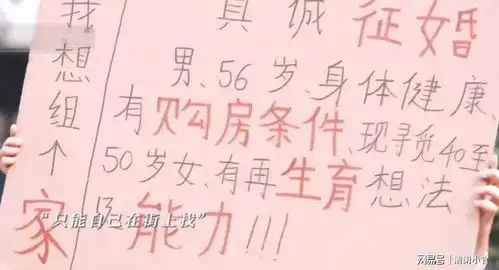 我想组个家
真诚征婚
男、56岁、身体健康、
有购房条件、现寻觅40至
50岁女、有再生育想法
能力!!!
"只能自己在街上找"
网易号 | 清闲小许